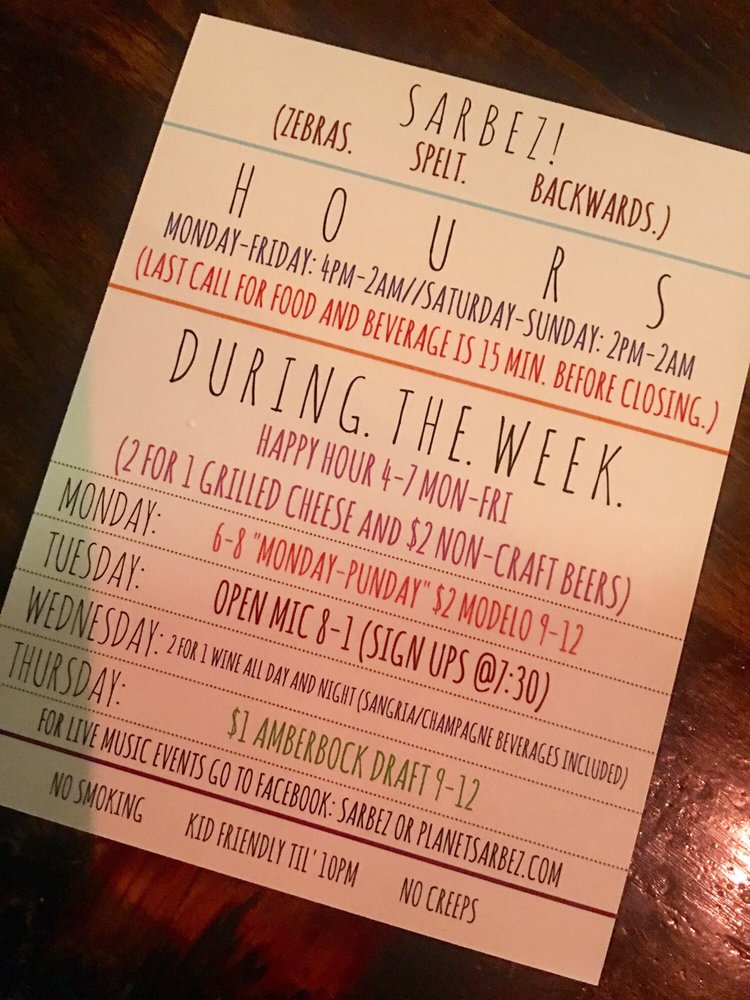 SARBEZ!
(ZEBRAS. SPELT. BACKWARDS.)
HOURS
MONDAY-FRIDAY: 4PM-2AM//SATURDAY-SUNDAY: 2PM-2AM
(LAST CALL FOR FOOD AND BEVERAGE IS 15 MIN. BEFORE CLOSING.)
DURING. THE. WEEK.
HAPPY HOUR 4-7 MON-FRI
(2 FOR 1 GRILLED CHEESE AND $2 NON-CRAFT BEERS)
MONDAY: 6-8 "MONDAY-PUNDAY" $2 MODELO 9-12
TUESDAY: OPEN MIC 8-1 (SIGN UPS @7:30)
WEDNESDAY: 2 FOR 1 WINE ALL DAY AND NIGHT (SANGRIA/CHAMPAGNE BEVERAGES INCLUDED)
THURSDAY: $1 AMBERBOCK DRAFT 9-12
FOR LIVE MUSIC EVENTS GO TO FACEBOOK: SARBEZ OR PLANETSARBEZ.COM
NO SMOKING KID FRIENDLY TIL' 10PM NO CREEPS